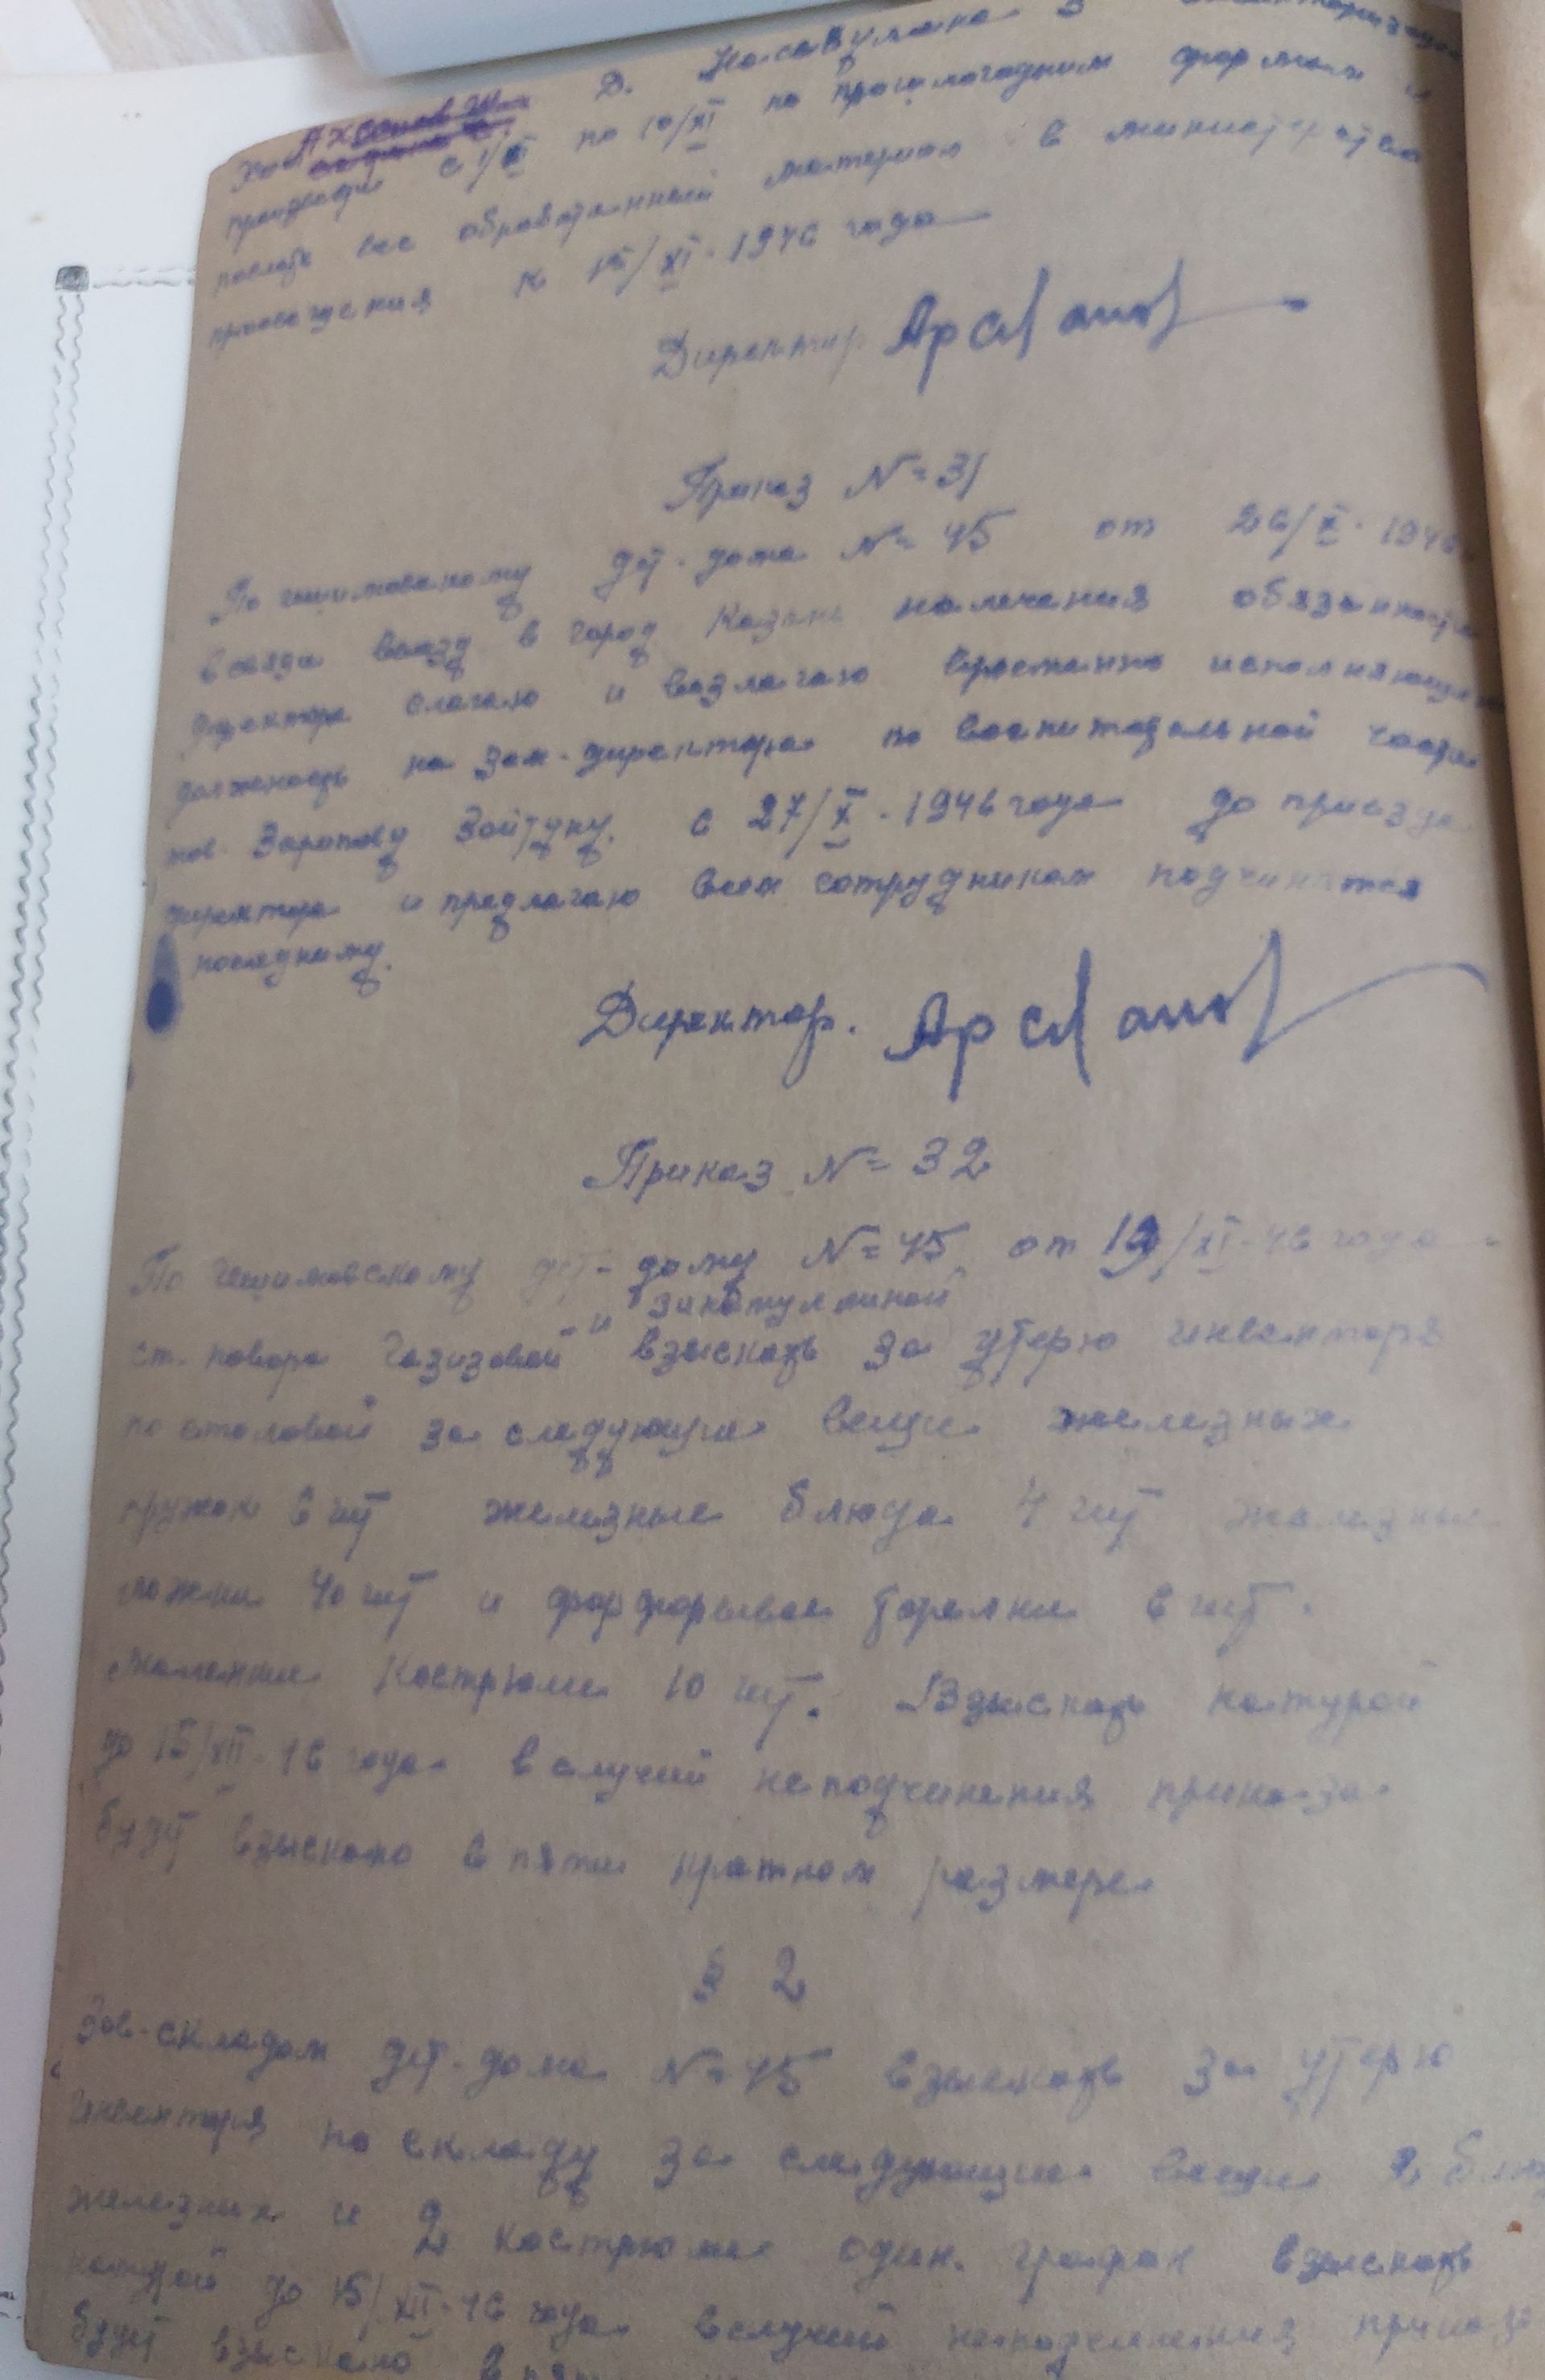 Д. Насабулина
произвести с 1/XI по 10/XI по прошлогодним формам и
послать все обработанный материал в министерства
просвещения к 15/XI-1946 года
Директор Арсланов
Приказ N= 31
По чишмовскому дет-дома N= 45 от 26/X-1946
всвязи выезд в город Казань налечения обязанность
директора слагаю и возлагаю временно исполняющ
должность на зам-директора по воспитательной части
тов. Зарипову Зайтуну. с 27/X-1946 года до приезда
директора и предлагаю всем сотрудникам подчинятся
последнему.
Директор. Арсланов
Приказ N= 32
По чишмовскому дет-дому N= 45 от 19/XI-46 года
и Зинатуллиной
ст. повара Газизовой взыскать за утерю инвентаря
по столовой за следующие вещи железных
кружек 6 шт железные блюда 4 шт железные
ложки 40 шт и фарфорывые тарелки 6 шт.
маленкие кострюли 10 шт. Взыскать натурой
до 15/XII-46 года в случий неподчинения приказа
будет взыскано в пяти кратном размере
§ 2
Зав-складом дет-дома N= 45 взыскать за утерю
инвентаря по складу за следующие вещи 2
железных и 2 кострюли один. графан взыскать
натурой до 15/XII-46 года в случий неподчинения приказа
будет взыскано в